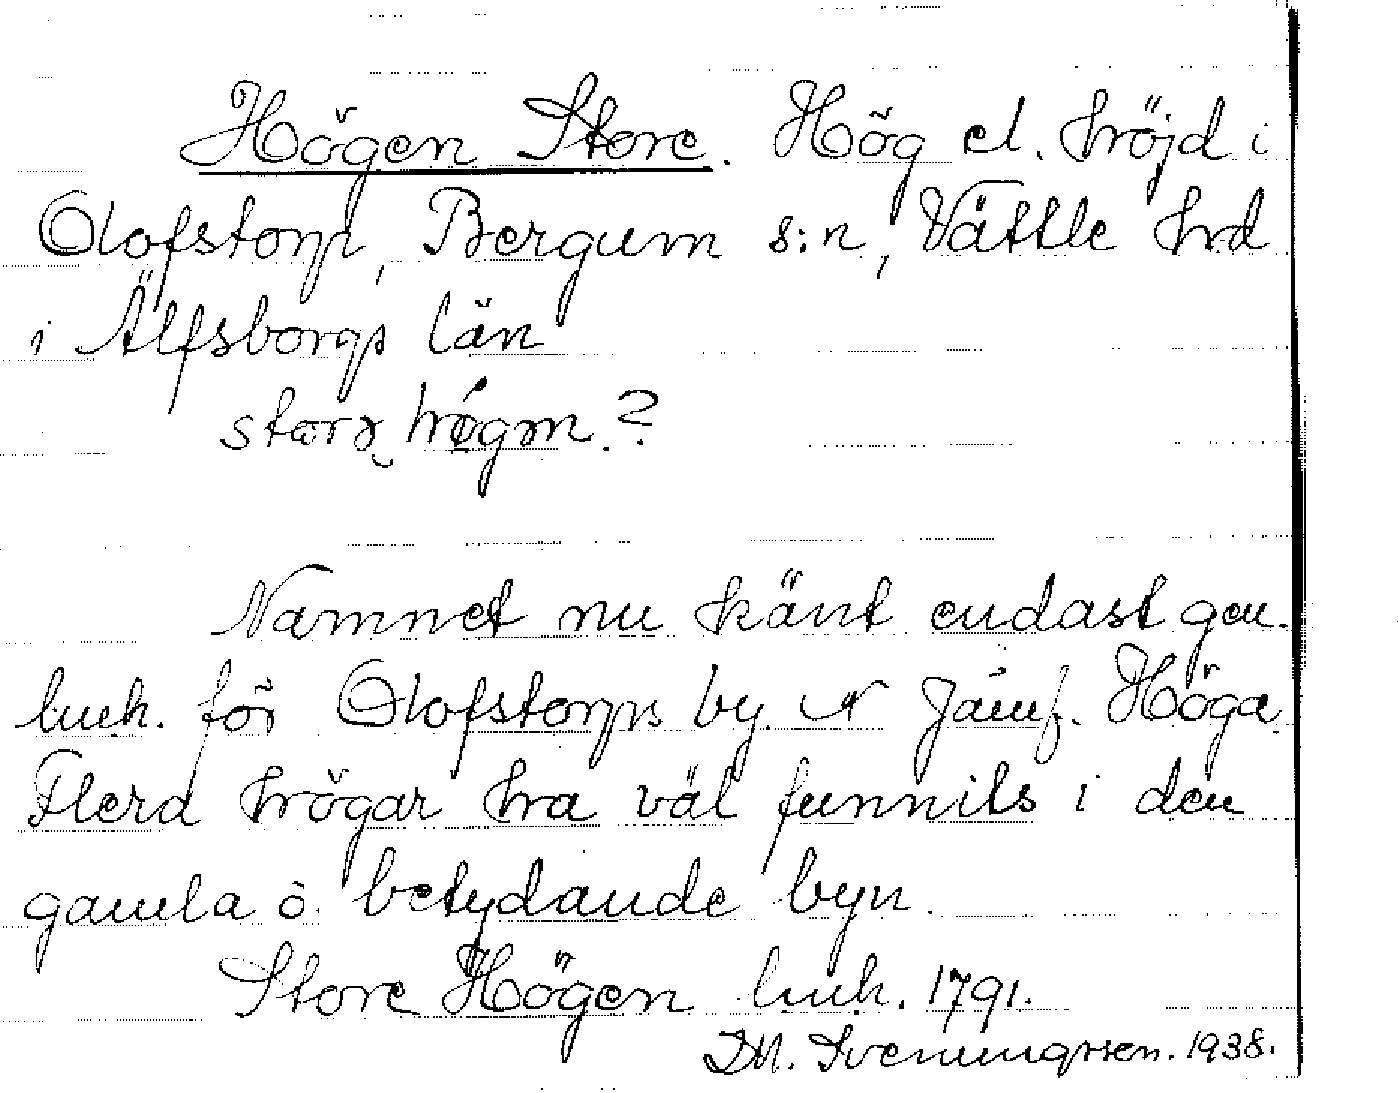 Högen Store. Hög el. höjd i
Olofstorp, Bergum s:n, Vättle hd
i Älfsborgs län
högen.?
Namnet nu känt endast gm.
luch. för Olofstorps by. Jämf. Höga
Flera högar ha väl funnits i den
gamla o. betydande byn.
Store Högen luch. 1791.
D.M. Sveningssen. 1938.